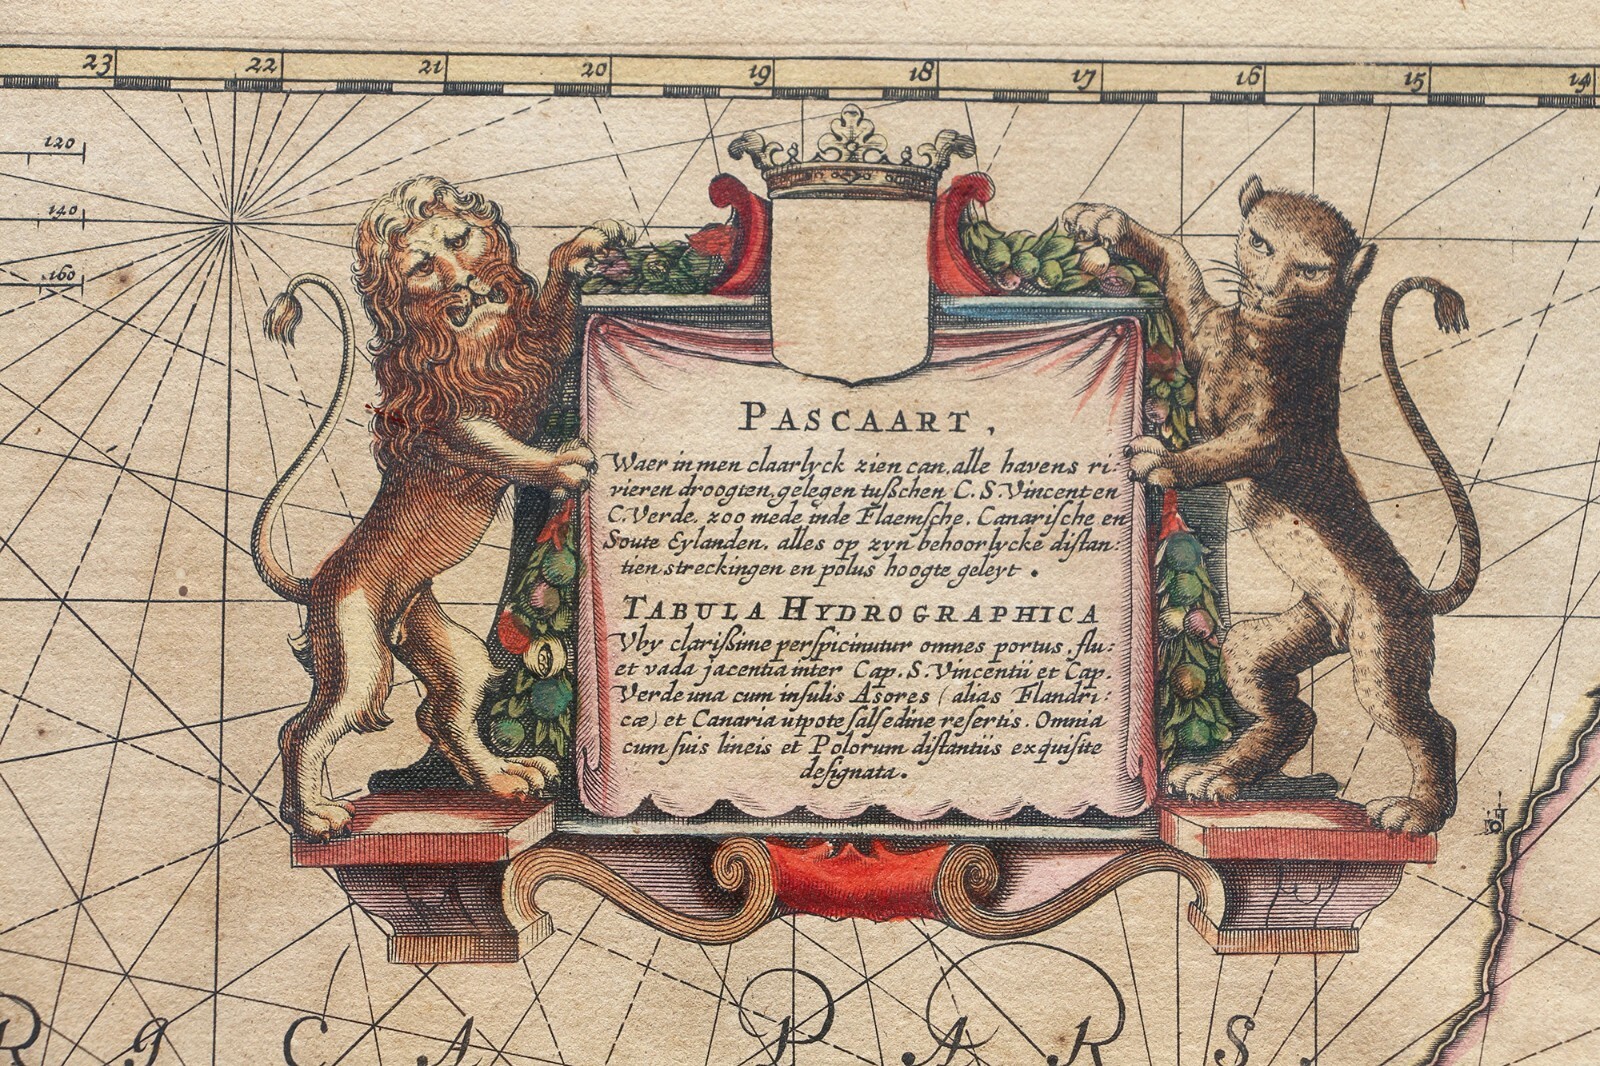 23 22 21 20 19 18 17 16 15 14
120
140
160
PASCAART,
Waer in men claarlyck zien can, alle havens ri:
vieren droogten, gelegen tußchen C. S. Vincent en
C. Verde. zoo mede inde Flaemsche. Canarische en
Soute Eylanden. alles op zyn behoorlycke distan:
tien streckingen en polus hoogte geleyt.
TABULA HYDROGRAPHICA
Vby clarißime perspicinutur omnes portus flu:
et vada jacentia inter Cap. S. Vincentii et Cap.
Verde una cum insulis Asores (alias Flandri:
cæ) et Canaria utpote salsedine refertis. Omnia
cum suis lineis et Polorum distantiis exquisite
designata.
R I C A PARS.